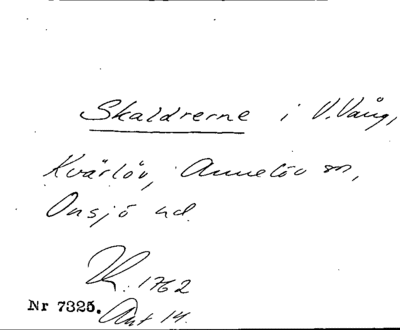 Skaldrerne i V. Vång,
Kvärlöv, Annelöv sn,
Onsjö hd.
R. 1762
Nr 7325. Ant 14.